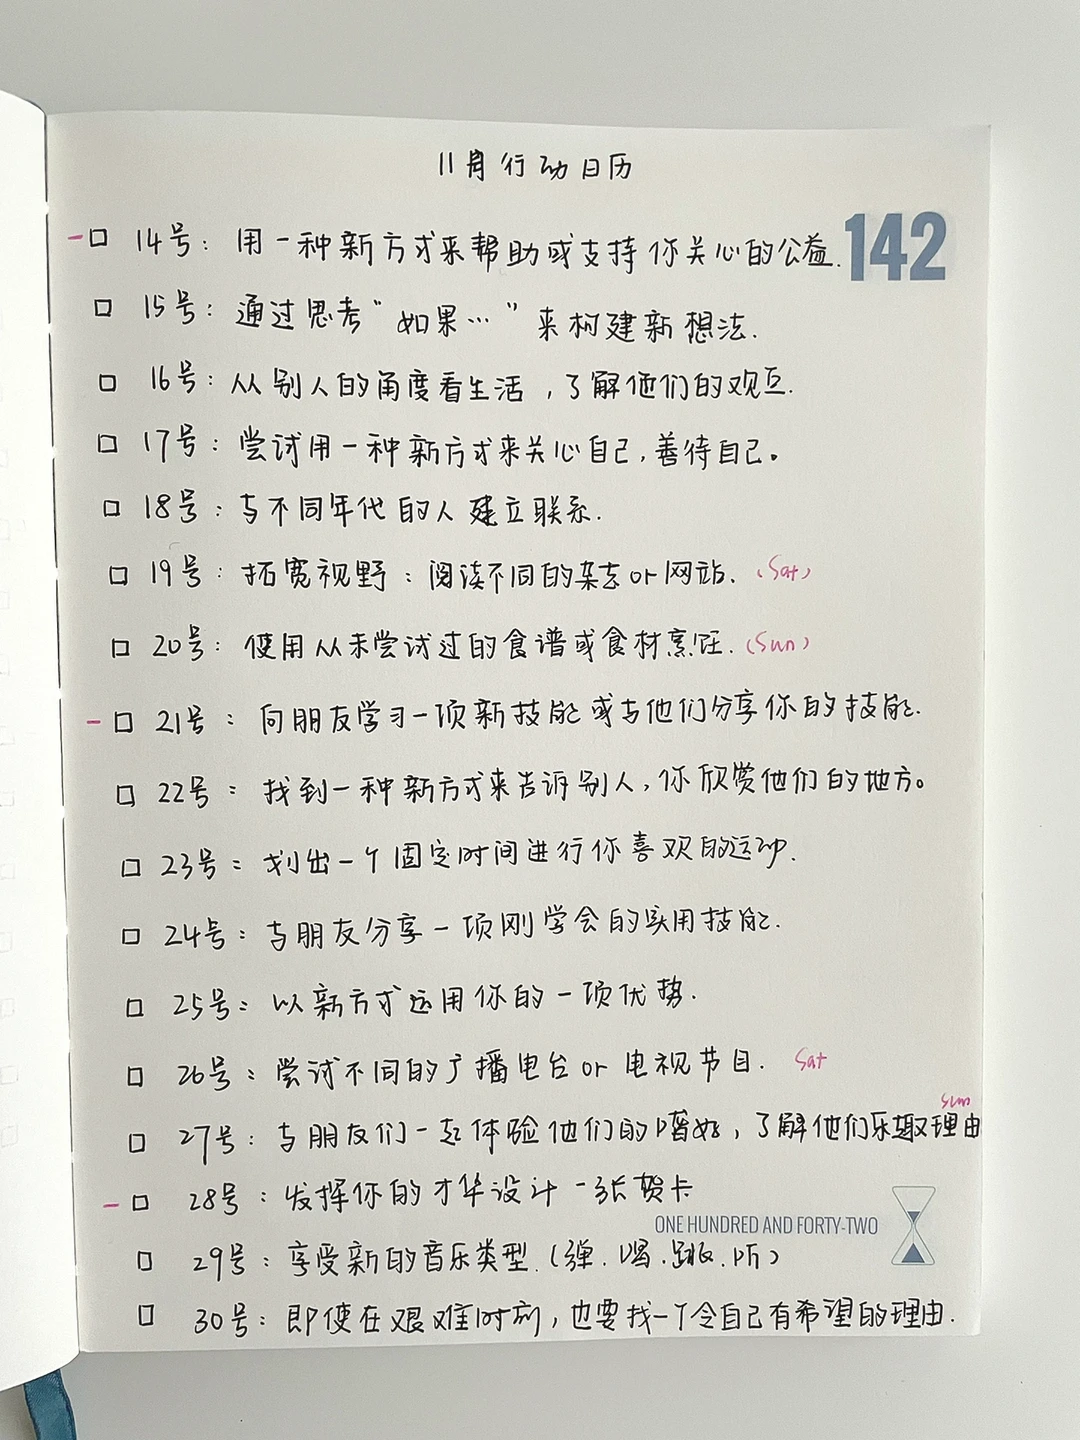 11月行动日历
142
一 □ 14号：用一种新方式来帮助或支持你关心的公益.
□ 15号：通过思考“如果…”来构建新想法.
□ 16号：从别人的角度看生活，了解他们的观点.
□ 17号：尝试用一种新方式来关心自己,善待自己。
□ 18号：与不同年代的人建立联系.
□ 19号：拓宽视野：阅读不同的杂志or网站.（Sat）
□ 20号：使用从未尝试过的食谱或食材烹饪.（Sun）
一 □ 21号：向朋友学习一项新技能或与他们分享你的技能.
□ 22号：找到一种新方式来告诉别人,你欣赏他们的地方。
□ 23号：划出一个固定时间进行你喜欢的运动.
□ 24号：与朋友分享一项刚学会的实用技能.
□ 25号：以新方式运用你的一项优势.
□ 26号：尝试不同的广播电台or电视节目. Sat
□ 27号：与朋友们一起体验他们的嗜好，了解他们乐趣理由 Sun
一 □ 28号：发挥你的才华设计一张贺卡
ONE HUNDRED AND FORTY-TWO
□ 29号：享受新的音乐类型.（弹.唱.跳.听）
□ 30号：即使在艰难时刻，也要找一个令自己有希望的理由.